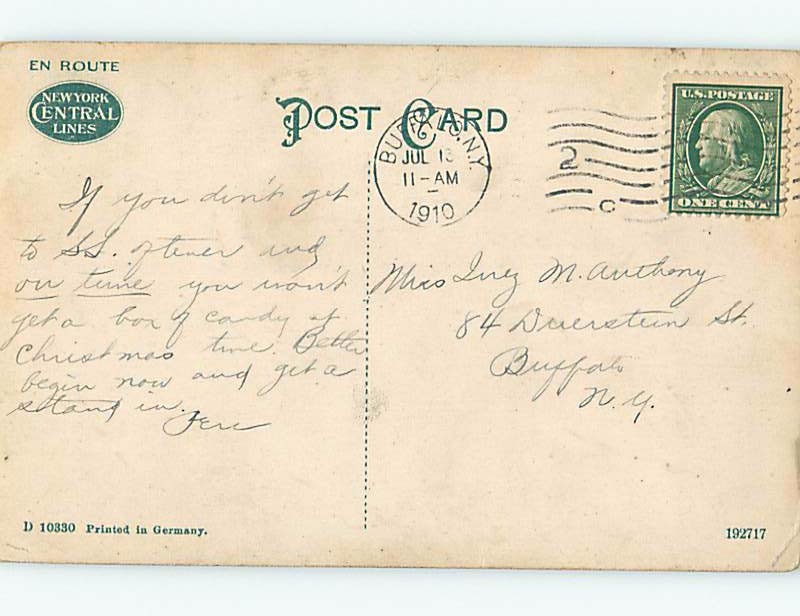 EN ROUTE
NEW YORK
CENTRAL
LINES
POST CARD
BUFFALO, N.Y.
JUL 13
11-AM
1910
2
C
U.S. POSTAGE
ONE CENT
If you don't get
to S.S. oftener and
on time you won't
get a box of candy at
Christmas time. Better
begin now and get a
stand in.
Miss Inez M. Anthony
84 Duerstein St.
Buffalo
N.Y.
D 10330 Printed in Germany.
192717